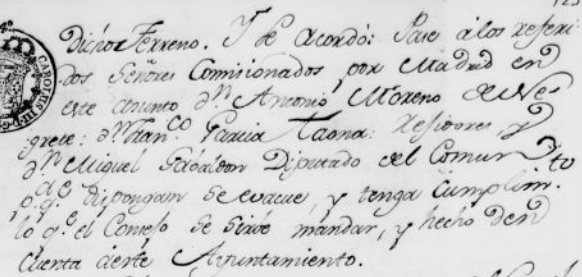 dichos Terreno. Y se Acordó: Pase á los referi-
dos Señores Comisionados, por Madrid en
este asunto Dn. Antonio Moreno de Ne-
grete: Dn. Franco. Garcia Taona: Regidores, y
Dn. Miguel Gabaldon Diputado del Comun
p.a q.e dispongan se evacue, y tenga cumplim.to
lo q.e el Consejo se sirve mandar, y hecho den
cuenta á este Ayuntamiento.
CAROLUS III